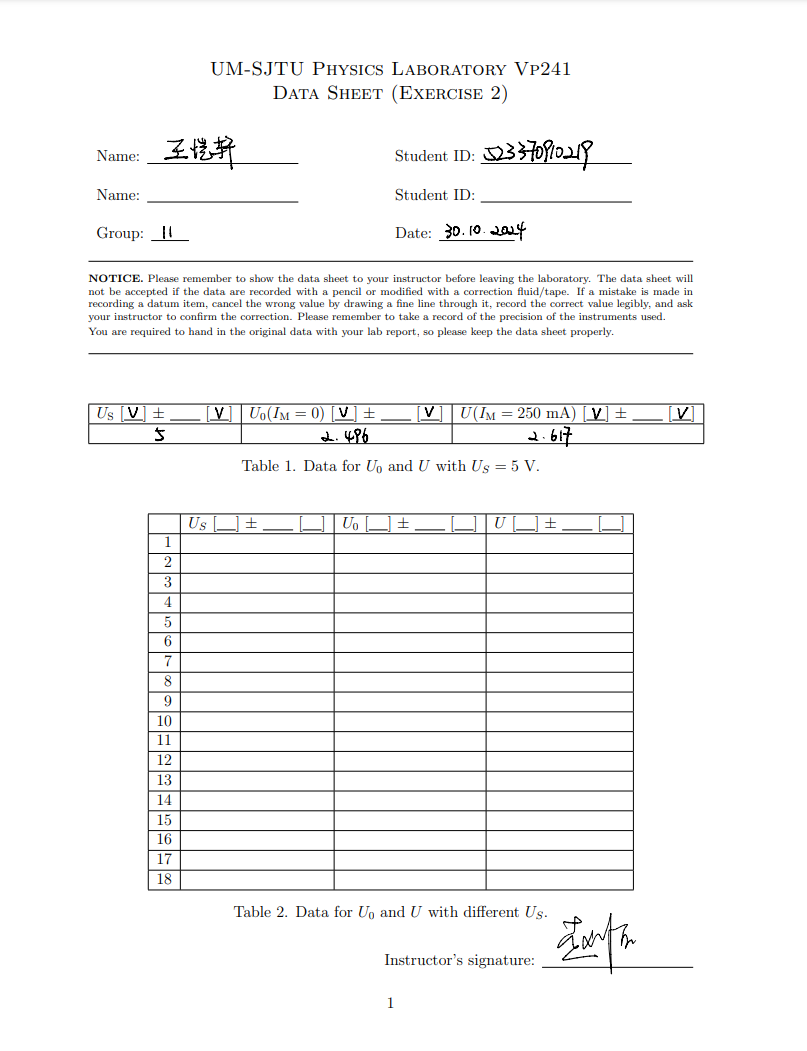 UM-SJTU PHYSICS LABORATORY VP241
DATA SHEET (EXERCISE 2)
Name: 王恺轩 Student ID: 523370910219
Name: ____ Student ID: ____
Group: 11 Date: 30.10.2024
NOTICE. Please remember to show the data sheet to your instructor before leaving the laboratory. The data sheet will
not be accepted if the data are recorded with a pencil or modified with a correction fluid/tape. If a mistake is made in
recording a datum item, cancel the wrong value by drawing a fine line through it, record the correct value legibly, and ask
your instructor to confirm the correction. Please remember to take a record of the precision of the instruments used.
You are required to hand in the original data with your lab report, so please keep the data sheet properly.
U_S [V] ± ____ [V] U_0(I_M = 0) [V] ± ____ [V] U(I_M = 250 mA) [V] ± ____ [V]
5 2.496 2.617
Table 1. Data for U_0 and U with U_S = 5 V.
U_S [__] ± ____ [__] U_0 [__] ± ____ [__] U [__] ± ____ [__]
1
2
3
4
5
6
7
8
9
10
11
12
13
14
15
16
17
18
Table 2. Data for U_0 and U with different U_S.
Instructor's signature:
1